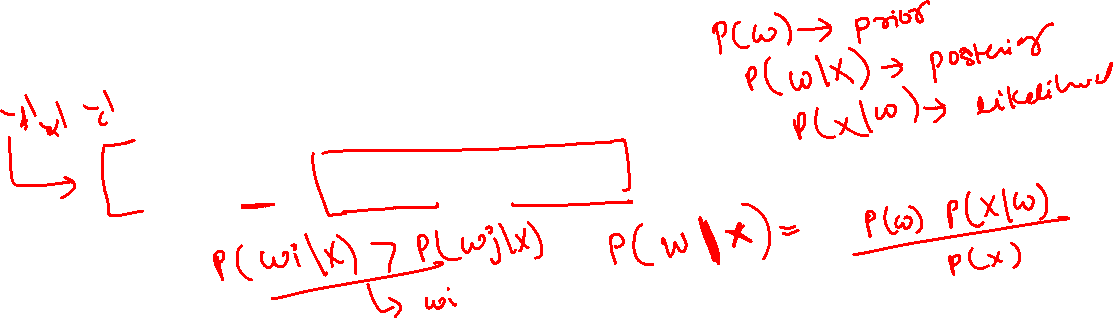 P(w) → prior
P(w|x) → posterior
P(x|w) → likelihood
P(wi|x) > P(wj|x)
↳ wi
P(w|x) = P(w) P(x|w) / P(x)